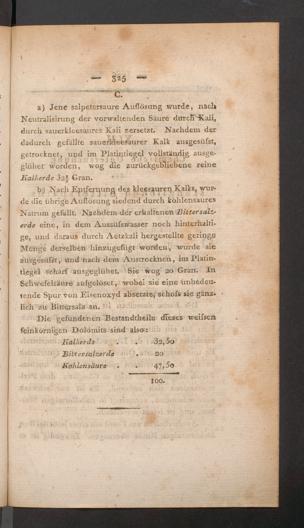 — 325 —
C.
a) Jene salpetersaure Auflösung wurde, nach
Neutralisirung der vorwaltenden Säure durch Kali,
durch sauerkleesaures Kali zersetzt. Nachdem der
dadurch gefällte sauerkleesaurer Kalk ausgesüfst,
getrocknet, und im Platintiegel vollständig ausge-
glühet worden, wog die zurückgebliebene reine
Kalkerde 32½ Gran.
b) Nach Entfernung des kleesauren Kalks, wur-
de die übrige Auflösung siedend durch kohlensaures
Natrum gefällt. Nachdem der erkalteten Bittersalz-
erde eine, in dem Aussüfswasser noch hinterhalti-
ge, und daraus durch Aetzkali hergestellte geringe
Menge derselben hinzugefügt worden, wurde sie
ausgesüfst, und nach dem Austrocknen, im Platin-
tiegel scharf ausgeglühet. Sie wog 20 Gran. In
Schwefelsäure aufgelöset, wobei sie eine unbedeu-
tende Spur von Eisenoxyd absetzte, schofs sie gänz-
lich zu Bittersalz an.
Die gefundenen Bestandtheile dieses weifsen
feinkörnigen Dolomits sind also:
Kalkerde . . 32,50
Bittersalzerde . 20
Kohlensäure . . 47,50
100.